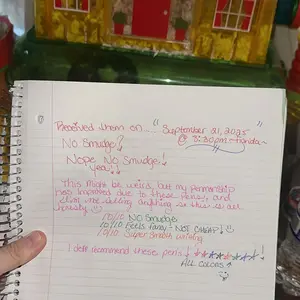 Received them on... "September 21, 2025"
@ 3:30pm ~Florida~
No Smudge?
Nope No Smudge
yay!!
This might be weird, but my Penmanship
has improved due to these Pens, and
I'm not selling anything so this is all
honesty.
10/10 No Smudge
10/10 Feels Fancy - NOT CHEAP
10/10 Super Smooth Writing
I def recommend these pens
ALL COLORS